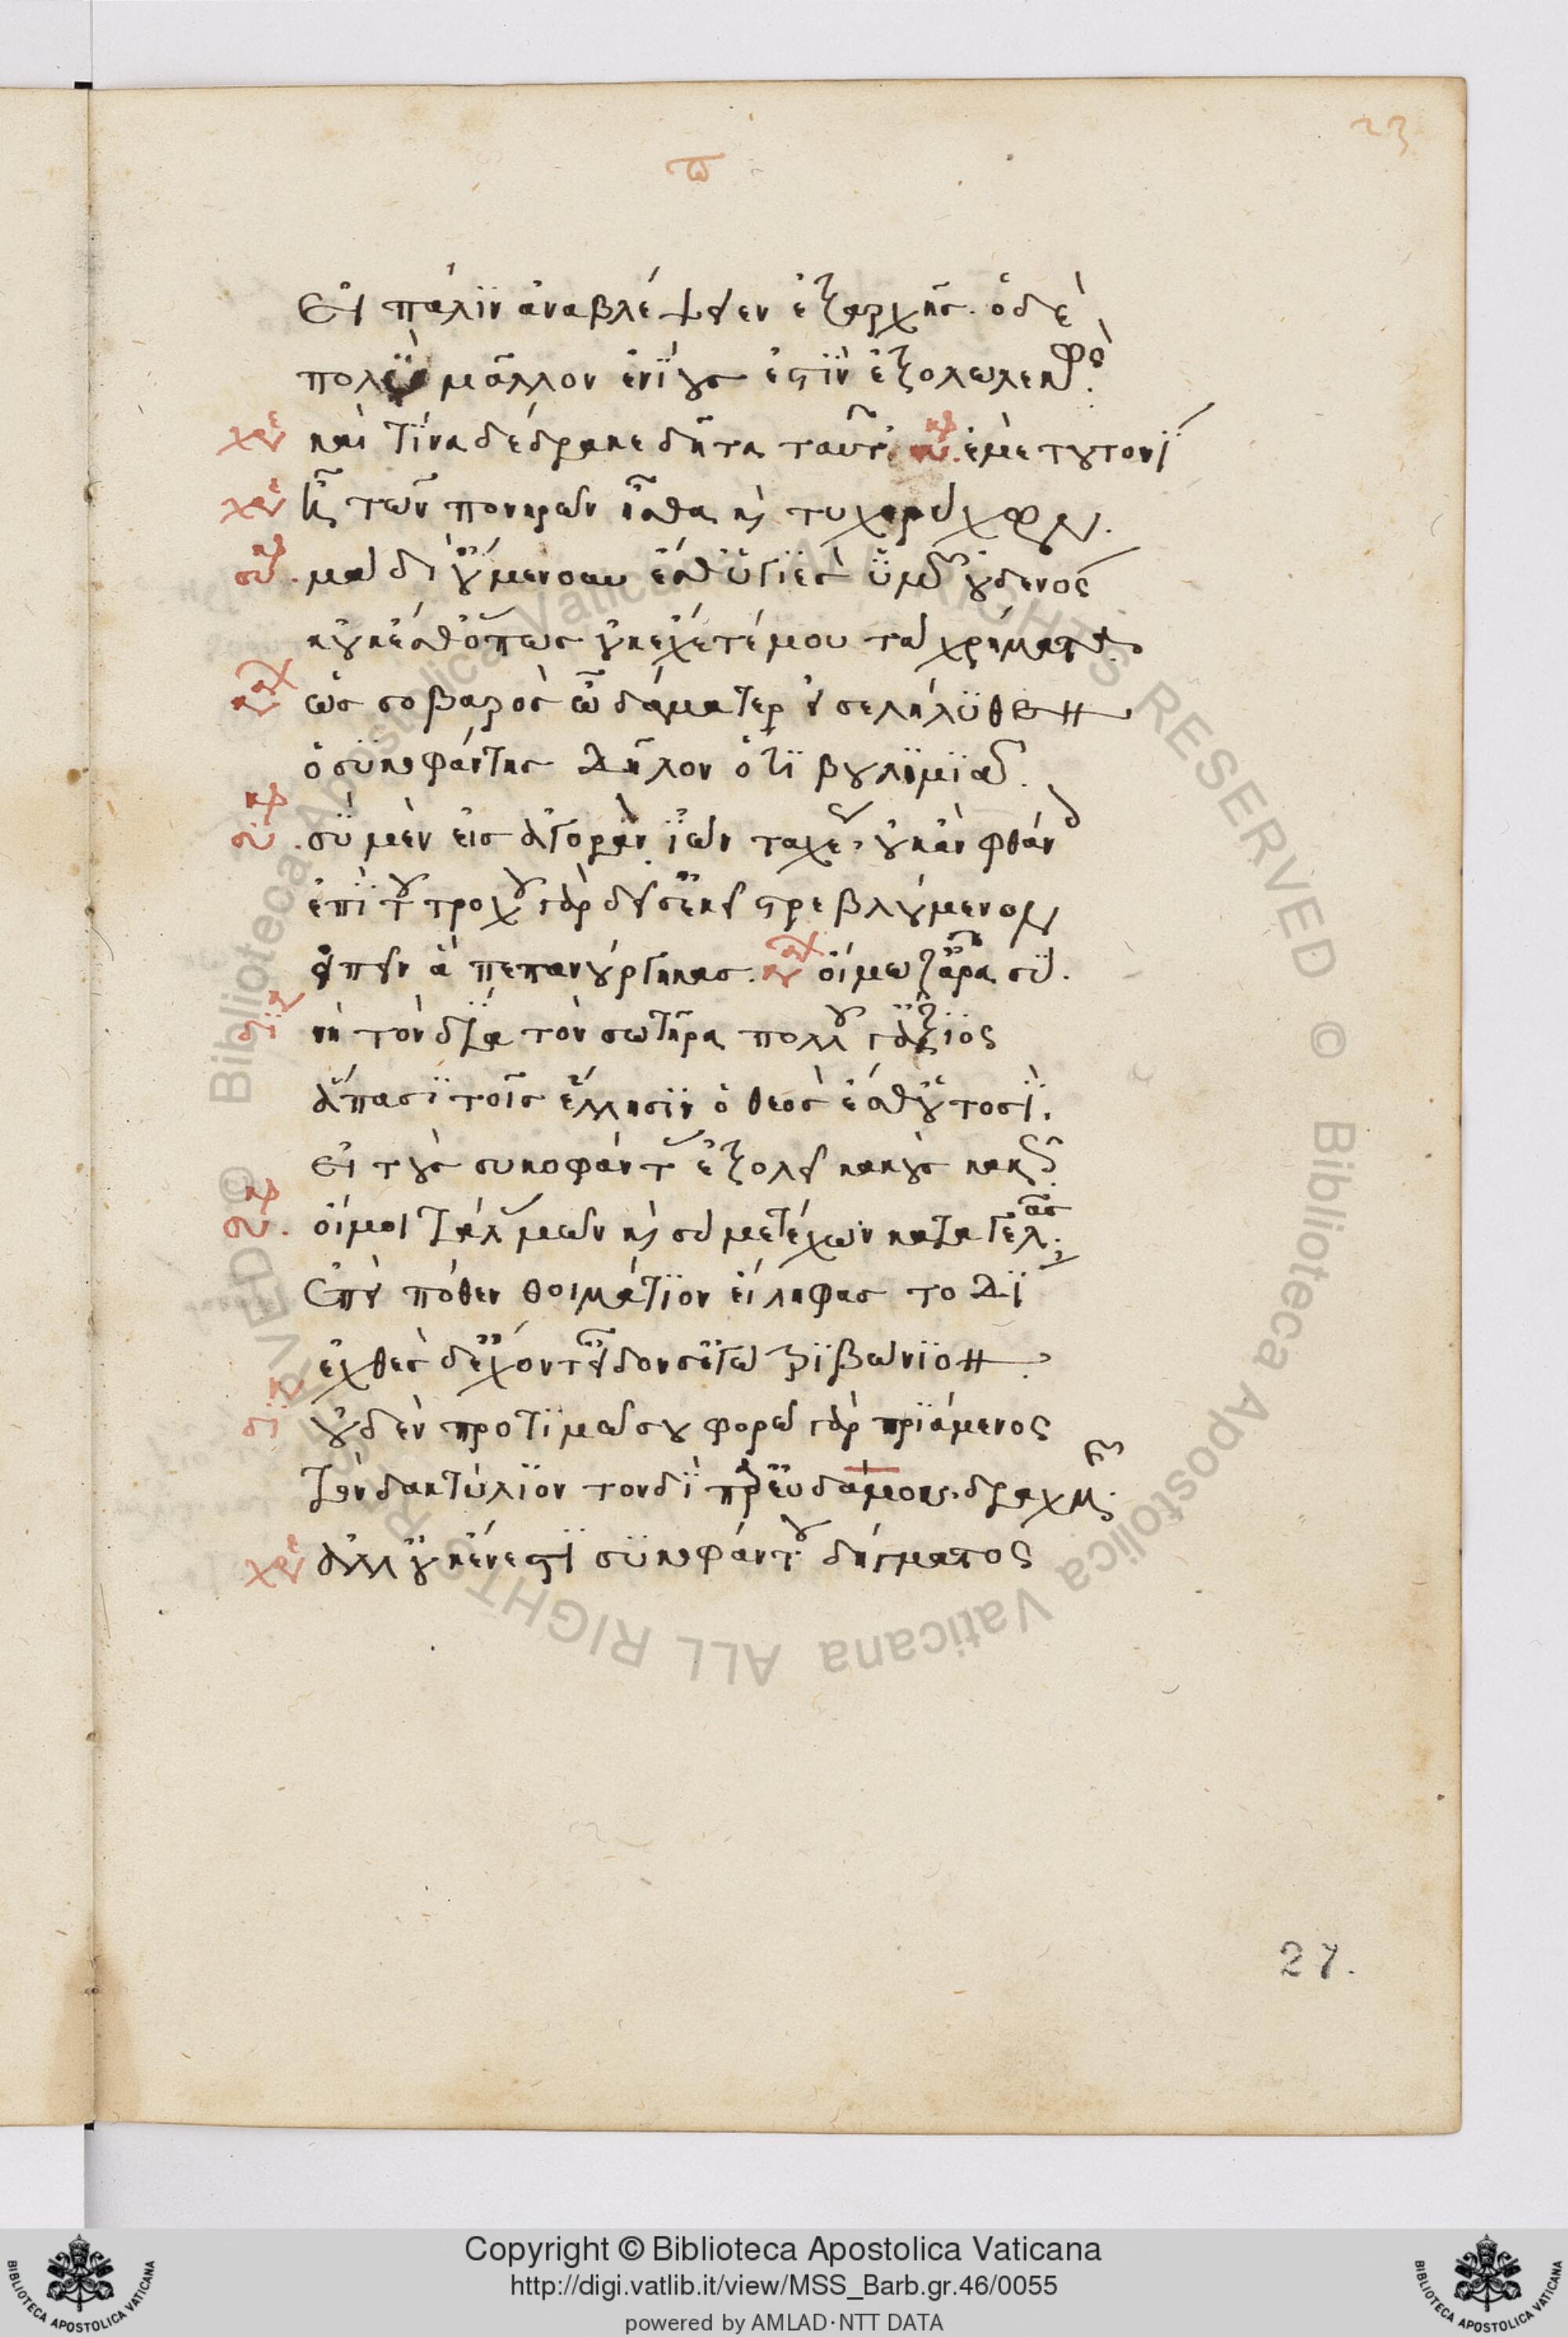 23
ω
εἰ πάλιν ἀναβλέψειεν ἐξαρχῆς. ὁ δὲ
πολὺ μᾶλλον ἐνίους ἐστὶν ἐξολωλεκώς.
χρε καὶ τίνα δέδρακε δῆτα ταῦτ. συκ. ἐμὲ τουτονί
χρε ἦ τῶν πονηρῶν ἦσθα καὶ τοιχωρύχων.
συκ. μὰ δι οὐμενοῦν ἔσθ ὑγιὲς ὑμῶν οὐδενός
κοὐκ ἔσθ ὅπως οὐκ ἔχετέ μου τὰ χρήματα.
καρ ὡς σοβαρὸς ὦ δάματερ εἰσελήλυθεν
ὁ συκοφάντης δῆλον ὅτι βουλιμιᾶ.
συκ. σὺ μὲν εἰς ἀγορὰν ἰὼν ταχέως οὐκ ἂν φθάν
ἐπὶ τοῦ τροχοῦ γὰρ δεῖ σ ἐκεῖ στρεβλούμενον
εἰπεῖν ἃ πεπανούργηκας. καρ οἰμώξαρα σύ.
δι νὴ τὸν δία τὸν σωτῆρα πολλοῦ γ ἄξιος
ἅπασι τοῖς ἕλλησιν ὁ θεὸς ἔσθ οὑτοσί.
εἰ τοὺς συκοφάντας ἐξολεῖ κακοὺς κακῶς.
συκ. οἴμοι τάλας μῶν καὶ σὺ μετέχων καταγελᾶς.
ἐπεὶ πόθεν θοἰμάτιον εἴληφας τοδί
ἐχθὲς δ ἔχοντ εἶδον σ ἐγὼ τριβώνιον.
δι οὐδὲν προτιμῶ σου φορῶ γὰρ πριάμενος
τὸν δακτύλιον τονδὶ παρ εὐδάμου. δραχμῆς.
χρε ἀλλ οὐκ ἔνεστι συκοφάντου δήγματος
27.
Copyright © Biblioteca Apostolica Vaticana
http://digi.vatlib.it/view/MSS_Barb.gr.46/0055
powered by AMLAD·NTT DATA